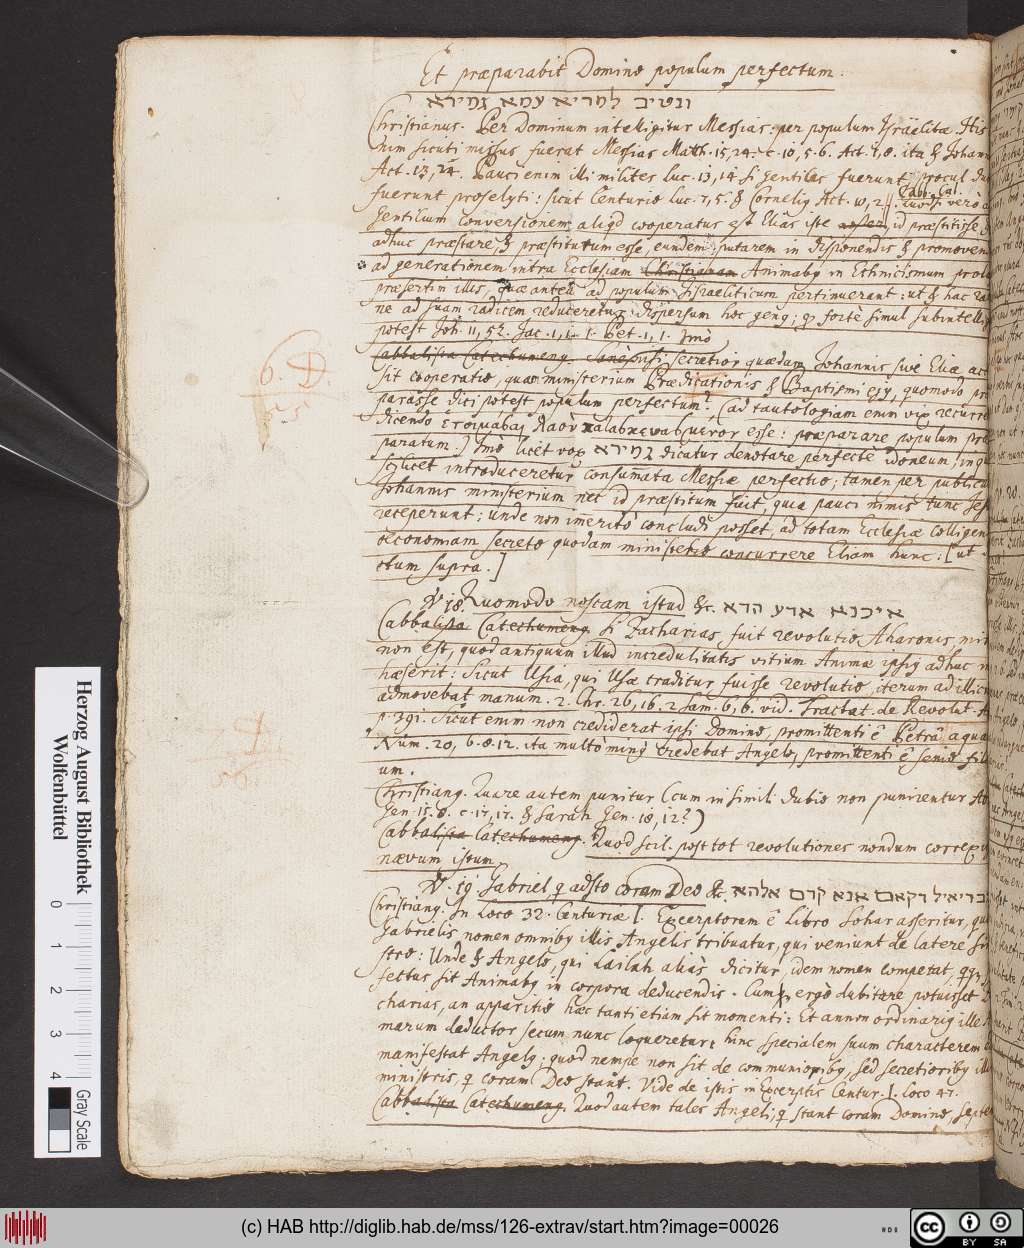 Et præparabit Domino populum perfectum.
ונטיב למריא עמא גמירא
Christianus. Per Dominum intelligitur Messias: per populum Israëlitæ. His
nim sicuti missus fuerat Messias Matth. 15, 24. c. 10, 5. 6. Act. 1, 8. ita & Johann
Act. 13, 24. Pauci enim illi milites Luc. 13, 14 si gentiles fuerunt, procul du
fuerunt proselyti: sicut Centurio Luc. 7, 5. & Cornelig Act. 10, 2. Cabb. Cat. Quodsi vero a
gentilium conversionem aliqd cooperatus est Elias iste noster, id præstitisse
adhuc præstare, & præstiturum esse eundem putarem in disponendis & promoven
ad generationem intra Ecclesiam Christianam Animabg in Ethnicismum prola
præsertim illis, quæ antea ad populum Israeliticum pertinuerant: ut & hac ra
ne ad suam radicem reduceretur dispersum hoc geng; q forte simul subintelli
potest Joh. 11, 52. Jac. 1, 1. 1. Pet. 1, 1. Imò
Cabbalista Catechumeng. Sane nisi secretior quædam Johannis sive Eliæ acc
sit cooperatio, quam ministerium Prædicationis & Baptismi ejg, quomodo præ
parasse dici potest populum perfectum? (ad tautologiam enim vix recurre
dicendo ἑτοιμάσαι λαὸν κατασκευασμένον esse: præparare populum præ
paratum.) Imò licet vox גמירא dicatur denotare perfecte idoneum, in qu
scilicet introduceretur consumata Messiæ perfectio; tamen per publicu
Johannis ministerium nec id præstitum fuit, quia pauci nimis tunc Jes
receperunt: unde non imerito concludi posset, ad totam Ecclesiæ colligen
œconomiam secreto quodam ministerio concurrere Eliam hunc: [ut
ctum supra.]
V. 18. Quomodo noscam istud &c. איכנא ארע הדא
Cabbalista Catechumeng. Si Zacharias, fuit revolutio Aharonis, mir
non est, quod antiquum illud incredulitatis vitium Animæ ipsig adhuc in
hæserit: Sicut Usia, qui Usæ traditur fuisse revolutio, iterum ad illici
admovebat manum. 2. Chr. 26, 16. 2 Sam. 6, 6. vid. Tractat. de Revolut.
p. 391. Sicut enim non crediderat ipsi Domino, promittenti è Petrâ aqua
Num. 20, 6. 8. 12. ita multò ming credebat Angelo, promittenti è senio fili
um.
Christiang. Quare autem punitur (cum in simili dubio non punirentur Ab
Gen. 15, 8. c. 17, 17. & Sarah Gen. 18, 12?)
Cabbalista Catechumeng. Quod scil. post tot revolutiones nondum correxi
nævum istum.
V. 19 Gabriel q adsto coram Deo &c. גבריאל דקאם אנא קדם אלהא
Christiang. In Loco 32. Centuriæ I. Excerptorum è Libro Sohar asseritur, qu
Gabrielis nomen omnibg illis Angelis tribuatur, qui veniunt de latere sin
stro: Unde & Angelo, qui Lailah aliàs dicitur, idem nomen competat, q præ
fectus sit Animabg in corpora deducendis. Cum ergò dubitare potuisset Z
charias, an apparitio hæc tanti etiam sit momenti: Et annon ordinarig ille A
marum deductor secum nunc loqueretur; hinc specialem suum characterem
manifestat Angelg; quod nempe non sit de communioribg, sed secretioribg illi
ministris, q coram Deo stant. Vide de istis in Excerptis Centur. I. loco 47.
Cabbalista Catechumeng. Quod autem tales Angeli, q stant coram Domino, septe
Herzog August Bibliothek
Wolfenbüttel
0 1 2 3 4
Gray Scale
(c) HAB http://diglib.hab.de/mss/126-extrav/start.htm?image=00026
cc BY SA